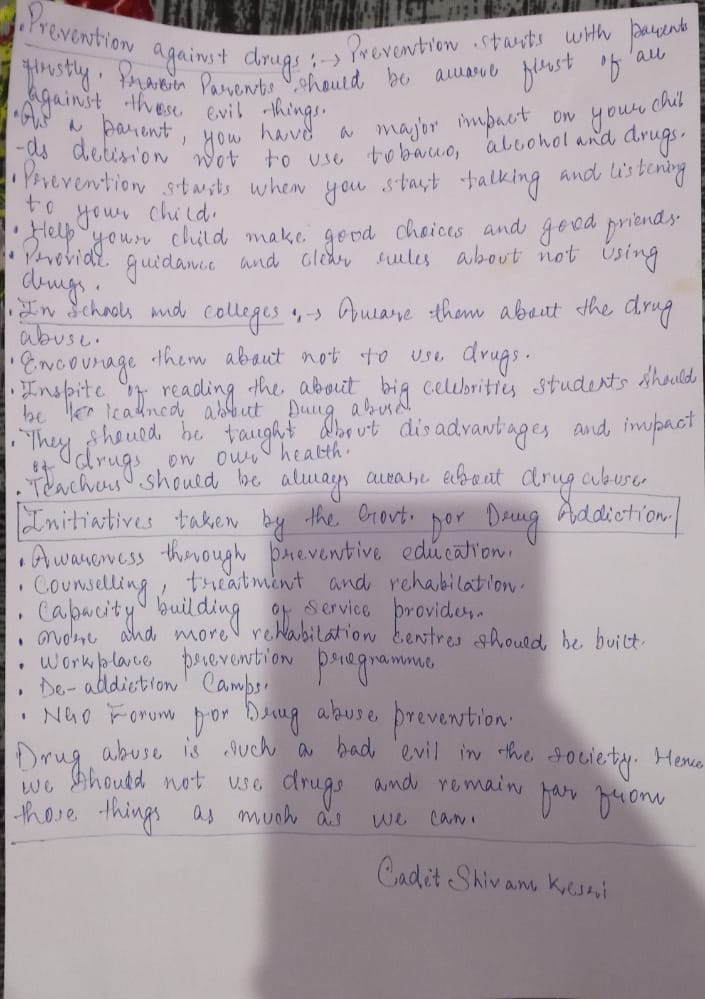 • Prevention against drugs :→ Prevention starts with parents
firstly. Parents should be aware first of all
against these evil things.
• As a parent, you have a major impact on your chil
-ds decision not to use tobacco, alcohol and drugs.
• Prevention starts when you start talking and listening
to your child.
• Help your child make good choices and good friends.
• Provide guidance and clear rules about not using
drugs.
• In schools and colleges :→ Aware them about the drug
abuse.
• Encourage them about not to use drugs.
• Inspite of reading the about big celebrities students should
be learned about Drug abuse.
• They should be taught about disadvantages and impact
of drugs on our health.
• Teachers should be always aware about drug abuse.
Initiatives taken by the Govt. for Drug Addiction.
• Awareness through preventive education.
• Counselling, treatment and rehabilation.
• Capacity building of service provider.
• more and more rehabilation centres should be built.
• Workplace prevention programme
• De-addiction Camps.
• NGO Forum for Drug abuse prevention.
Drug abuse is such a bad evil in the society. Hence
we should not use drugs and remain far from
those things as much as we can.
Cadet Shivam Kesri